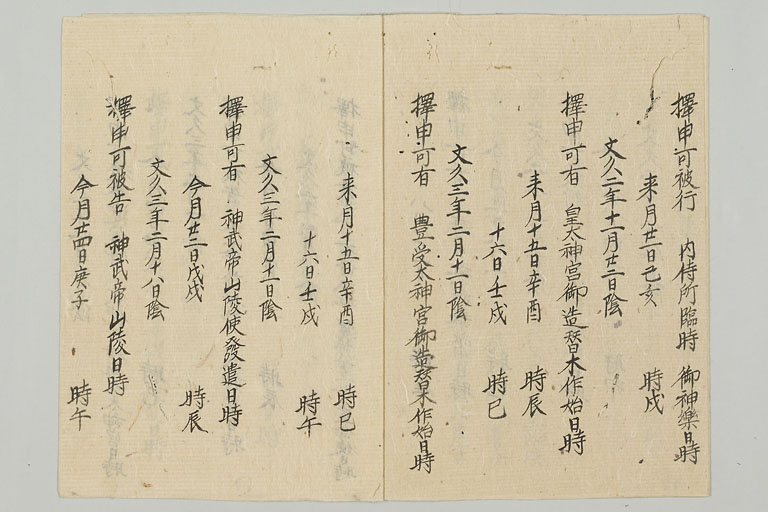 擇申可被行 内侍所臨時 御神樂日時
来月廿一日己亥 時戌
文久二年十一月廿二日陰
擇申可有 皇太神宮御造替木作始日時
来月十五日辛酉 時辰
十六日壬戌 時巳
文久三年二月十一日陰
擇申可有 豊受太神宮御造替木作始日時
来月十五日辛酉 時巳
十六日壬戌 時午
文久三年二月十一日陰
擇申可有 神武帝山陵使發遣日時
今月廿二日戊戌 時辰
文久三年二月十八日陰
擇申可被告 神武帝山陵日時
今月廿四日庚子 時午